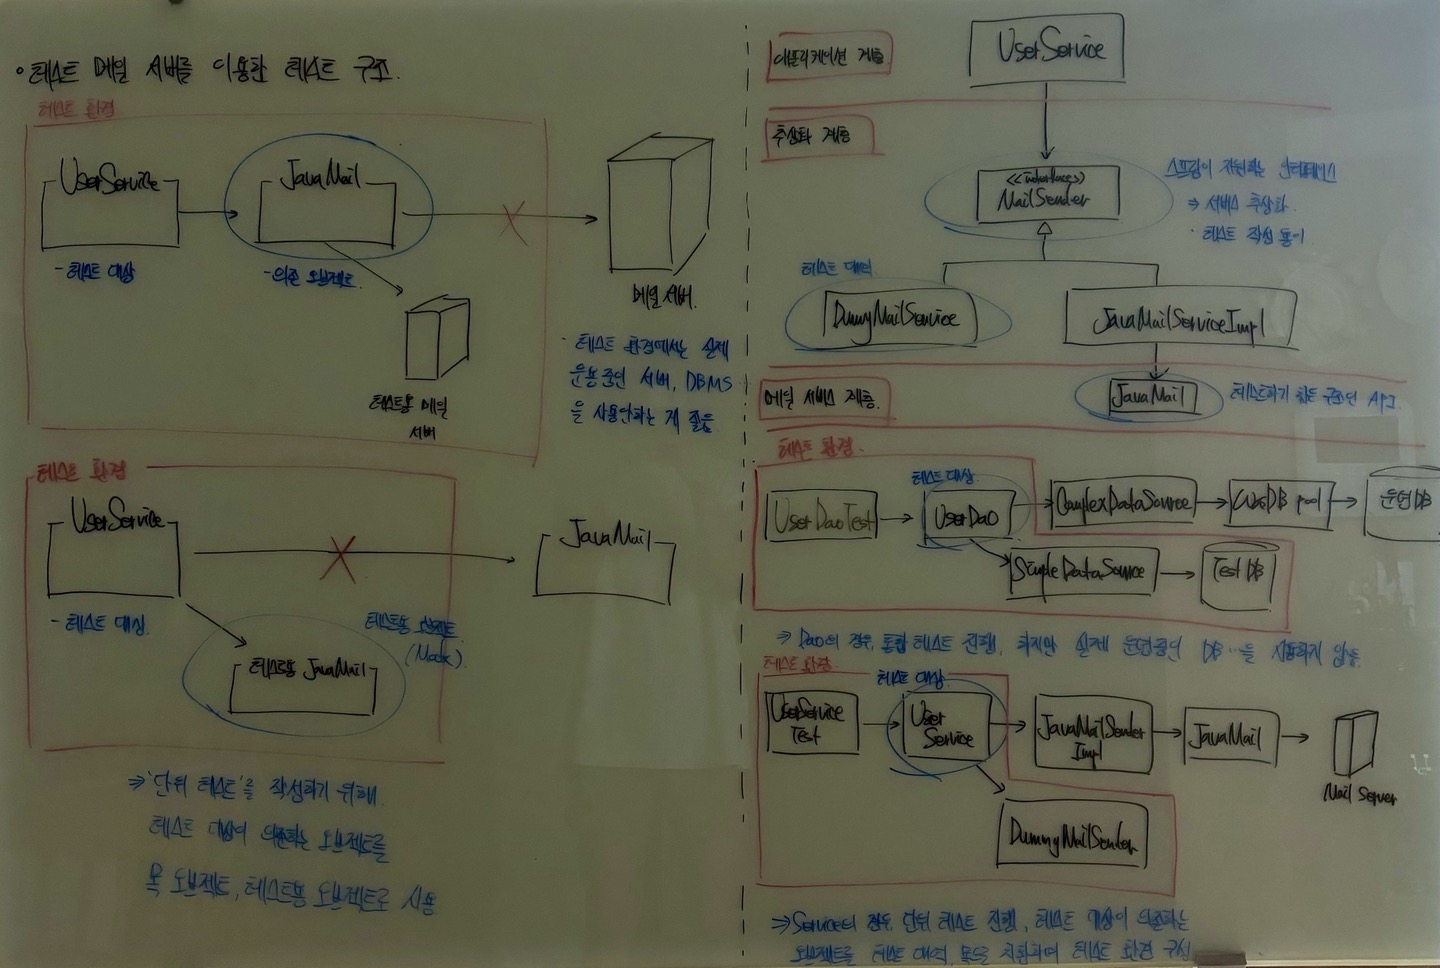 • 테스트 메일 서버를 이용한 테스트 구조.
테스트 환경
UserService
JavaMail
- 테스트 대상
- 의존 오브젝트.
메일서버.
테스트용 메일
서버
· 테스트 환경에서는 실제
운용중인 서버, DBMS
을 사용안하는 게 좋음
테스트 환경
UserService
JavaMail
- 테스트 대상.
테스트용 오브젝트
(Mock).
테스트용 JavaMail
⇒ '단위 테스트'를 작성하기 위해.
테스트 대상이 의존하는 오브젝트를
목 오브젝트, 테스트용 오브젝트로 사용
어플리케이션 계층
UserService
추상화 계층
<<interface>>
MailSender
스프링이 지원하는 인터페이스
⇒ 서비스 추상화.
· 테스트 작성 용이.
테스트 대역
DummyMailService
JavaMailServiceImpl
메일 서비스 계층.
JavaMail
테스트하기 힘든 구조인 API
테스트 환경.
테스트 대상.
UserDaoTest
UserDao
ComplexDataSource
WasDB pool
운영DB
SimpleDataSource
Test DB
⇒ Dao의 경우, 통합 테스트 진행, 하지만 실제 운영중인 DB..을 사용하지 않음.
테스트 환경.
테스트 대상.
UserService
Test
User
Service
JavaMailSender
Impl
JavaMail
Mail Server
DummyMailSender
⇒ Service의 경우, 단위 테스트 진행, 테스트 대상이 의존하는
오브젝트를 테스트 대역, 목으로 치환하여 테스트 환경 구성